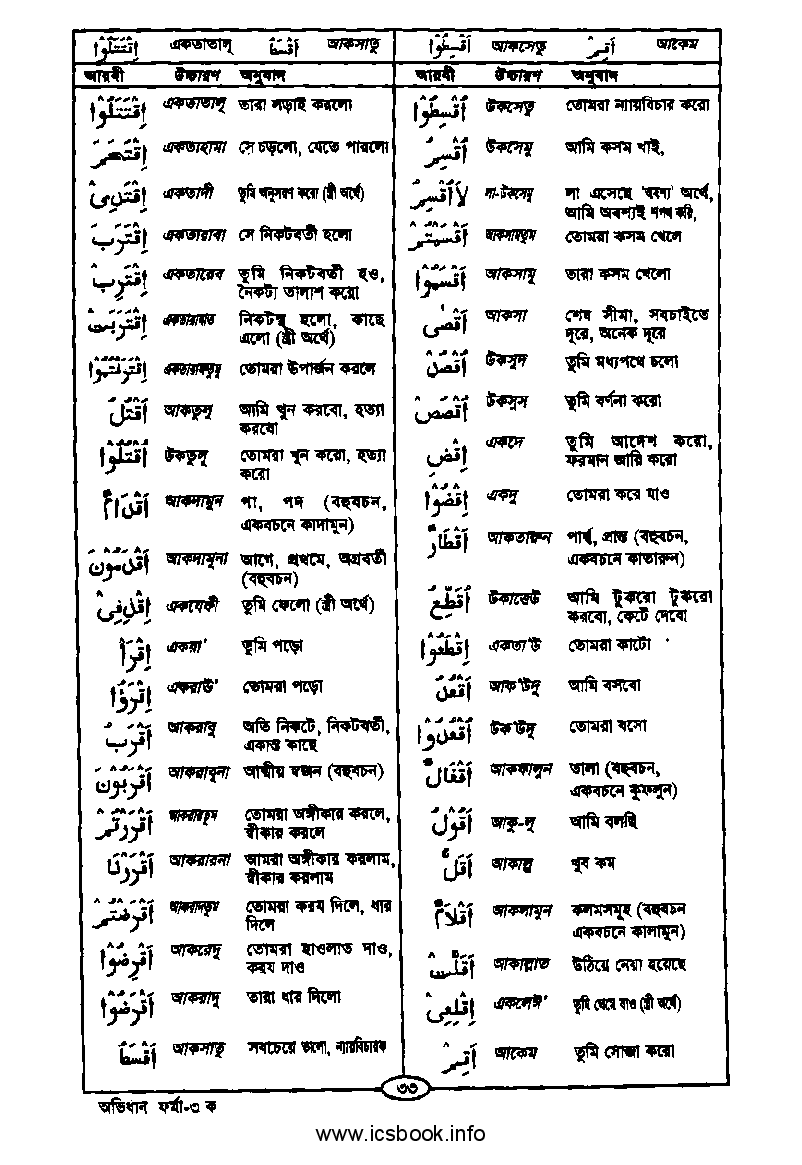 اِقْتَتَلُوْا একতাতালূ اَقْسَطُ আকসাতু
আরবী উচ্চারণ অনুবাদ
اِقْتَتَلُوْا একতাতালূ তারা লড়াই করলো
اِقْتَحَمَ একতাহামা সে চড়লো, যেতে পারলো
اِقْتَدِىْ একতাদী তুমি অনুসরণ করো (স্ত্রী অর্থে)
اِقْتَرَبَ একতারাবা সে নিকটবর্তী হলো
اِقْتَرِبْ একতারেব তুমি নিকটবর্তী হও,
নৈকট্য তালাশ করো
اِقْتَرَبَتْ একতারাবাত নিকটস্থ হলো, কাছে
এলো (স্ত্রী অর্থে)
তোমরা উপার্জন করলে
اَقْتُلُ আকতুলু আমি খুন করবো, হত্যা
করবো
اُقْتُلُوْا উকতুলূ তোমরা খুন করো, হত্যা
করো
اَقْدَامٌ আকদামুন পা, পদ (বহুবচন,
একবচনে কাদামুন)
اَقْدَمُوْنَ আকদামূনা আগে, প্রথমে, অগ্রবর্তী
(বহুবচন)
اِقْذِفِىْ একযেফী তুমি ফেলো (স্ত্রী অর্থে)
اِقْرَأْ একরা' তুমি পড়ো
اِقْرَؤُا একরাউ' তোমরা পড়ো
اَقْرَبُ আকরাবু অতি নিকটে, নিকটবর্তী,
একান্ত কাছে
اَقْرَبُوْنَ আকরাবূনা আত্মীয় স্বজন (বহুবচন)
اَقْرَرْتُمْ আকরারতুম তোমরা অঙ্গীকার করলে,
স্বীকার করলে
اَقْرَرْنَا আকরারনা আমরা অঙ্গীকার করলাম,
স্বীকার করলাম
اَقْرَضْتُمْ আকরাদতুম তোমরা করয দিলে, ধার
দিলে
اَقْرِضُوْا আকরেদূ তোমরা হাওলাত দাও,
করয দাও
اَقْرَضُوْا আকরাদূ তারা ধার দিলো
اَقْسَطُ আকসাতু সবচেয়ে ভালো, ন্যায়বিচারক
اَقْسِطُوْا আকসেতূ اَقِمْ আকেম
আরবী উচ্চারণ অনুবাদ
اَقْسِطُوْا উকসেতূ তোমরা ন্যায়বিচার করো
اُقْسِمُ উকসেমু আমি কসম খাই,
لَا اُقْسِمُ লা-উকসেমু লা এসেছে 'অবশ্য' অর্থে,
আমি অবশ্যই শপথ করি,
اَقْسَمْتُمْ আকসামতুম তোমরা কসম খেলে
اَقْسَمُوْا আকসামূ তারা কসম খেলো
اَقْصٰى আকসা শেষ সীমা, সবচাইতে
দূরে, অনেক দূরে
اُقْصُدْ উকসুদ তুমি মধ্যপথে চলো
اُقْصُصْ উকসুস তুমি বর্ণনা করো
اِقْضِ একদে তুমি আদেশ করো,
ফরমান জারি করো
اِقْضُوْا একদূ তোমরা করে যাও
اَقْطَارٌ আকতারুন পার্শ্ব, প্রান্ত (বহুবচন,
একবচনে কাতারুন)
اُقَطِّعُ উকাত্তেউ আমি টুকরো টুকরো
করবো, কেটে দেবো
اِقْطَعُوْا একতা'উ তোমরা কাটো
اَقْعُدُ আক'উদু আমি বসবো
اُقْعُدُوْا উক'উদূ তোমরা বসো
اَقْفَالٌ আকফালুন তালা (বহুবচন,
একবচনে কুফলুন)
اَقُوْلُ আকু-লু আমি বলছি
اَقَلَّ আকাল্ল খুব কম
اَقْلَامٌ আকলামুন কলমসমূহ (বহুবচন
একবচনে কালামুন)
اَقَلَّتْ আকাল্লাত উঠিয়ে নেয়া হয়েছে
اَقْلِعِىْ একলেঈ' তুমি থেমে যাও (স্ত্রী অর্থে)
اَقِمْ আকেম তুমি সোজা করো
৩৩
অভিধান ফর্মা-৩ ক
www.icsbook.info